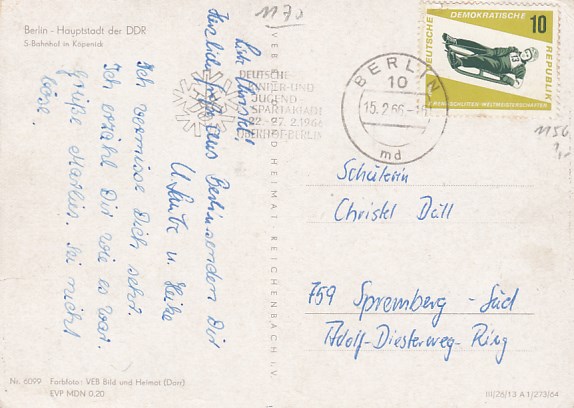 1170
Berlin - Hauptstadt der DDR
S-Bahnhof in Köpenick
Liebe Christel,
Herzliche Grüße aus Berlin senden Dir
U. Laube u. Heike
Ich vermisse Dich sehr.
Ich erzähl Dir wie es war.
Grüße Marlies. Sei nicht
böse.
DEUTSCHE
KINDER-UND
JUGEND
SPARTAKIADE
22.-27.2.1966
OBERHOF-BERLIN
BERLIN
10
15.2.66
md
DEUTSCHE DEMOKRATISCHE REPUBLIK
10
X. RENNSCHLITTEN-WELTMEISTERSCHAFTEN
1156
VEB BILD UND HEIMAT REICHENBACH I.V.
Schülerin
Christel Däll
759 Spremberg - Süd
Adolf-Diesterweg-Ring
Nr. 6099 Farbfoto: VEB Bild und Heimat (Darr)
EVP MDN 0.20
III/26/13 A 1/273/64